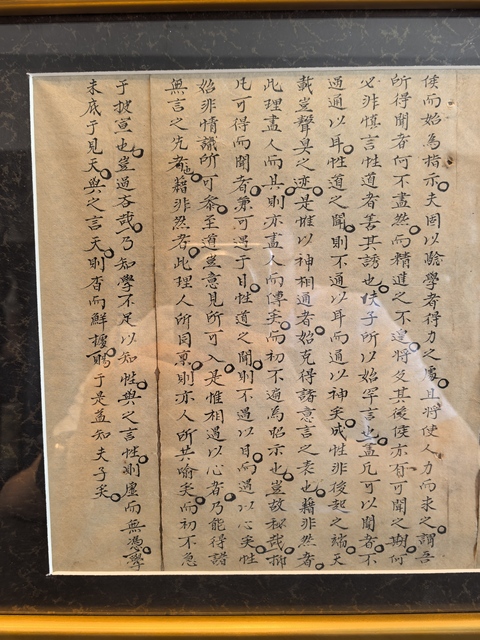 俟而始為指示夫固以驗學者得力之處且將使人力而求之謂吾
所得聞者何不盡然而精進之不遑將及其後俟亦有可聞之期何
必非慎言性道者善其誘也夫子所以始罕言也蓋凡可以聞者不
過通以耳性道之聞則不通以耳而通以神矣成性非後起之端天
載豈聲臭之迹是惟以神相通者始克得諸意言之表也藉非然者
此理盡人而具則亦盡人而傳矣而初不遍為昭示也豈故秘哉抑
凡可得而聞者第可遇于目性道之聞則不遇以目而遇以心矣性
始非情識所可參至道豈意見所可入是惟相遇以心者乃能得諸
無言之先者也藉非然者此理人所同稟則亦人所共喻矣而初不急
于披宣也豈過吝哉乃知學不足以知性與之言性則虛而無憑學
未底于見天與之言天則杳而鮮據賜于是益知夫子矣